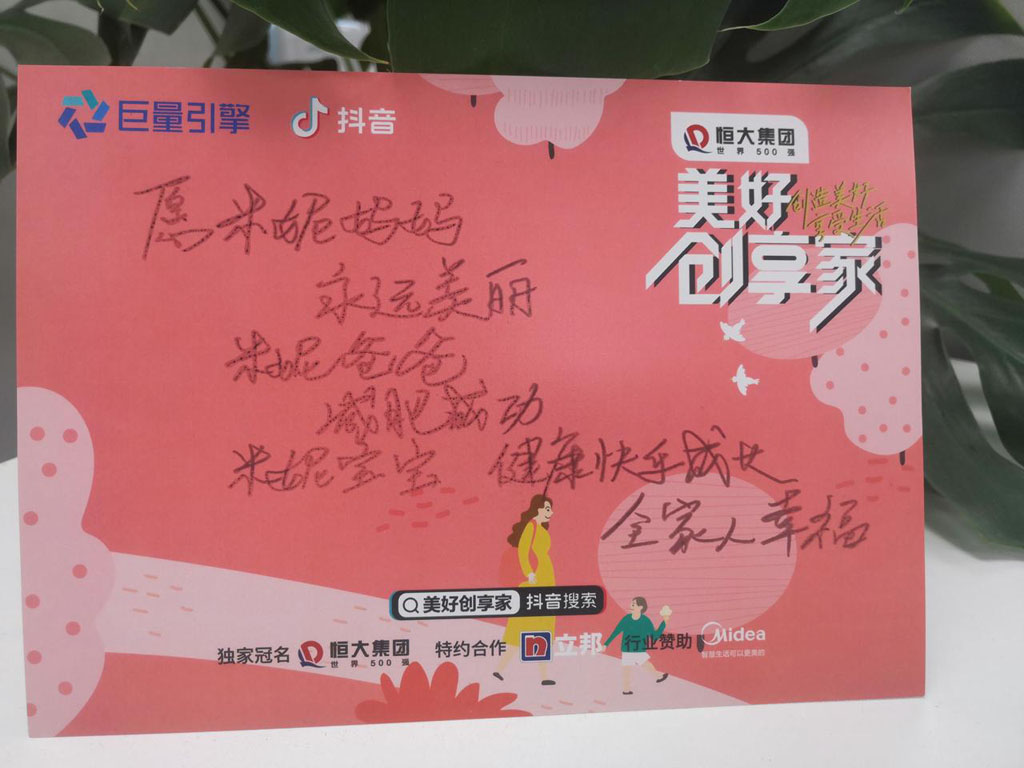 巨量引擎
抖音
恒大集团
世界500强
美好
创造美好
享受生活
创享家
愿米妮妈妈
永远美丽
米妮爸爸
减肥成功
米妮宝宝 健康快乐成长
全家人幸福
美好创享家 抖音搜索
独家冠名 恒大集团 特约合作 n 立邦 行业赞助 Midea
世界500强
智慧生活可以更美的